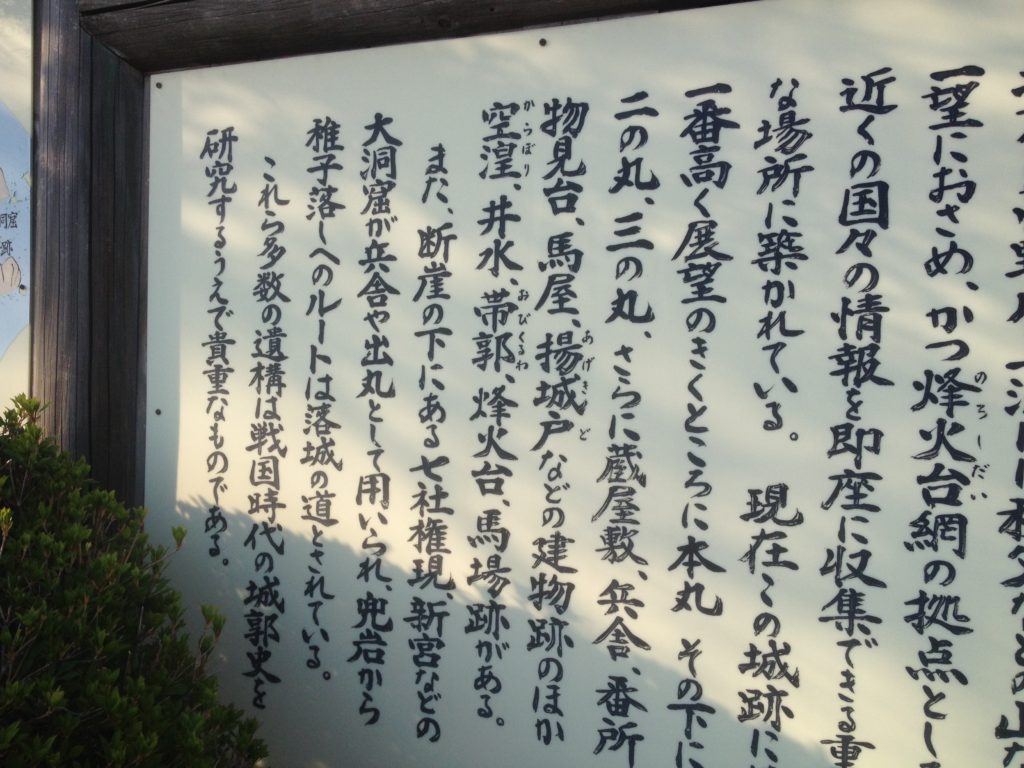 一望におさめ、かつ烽火台網の拠点とし
近くの国々の情報を即座に収集できる重
な場所に築かれている。 現在この城跡に
一番高く展望のきくところに本丸 その下に
二の丸、三の丸、さらに蔵屋敷、兵舎、番所
物見台、馬屋、揚城戸などの建物跡のほか
空湟、井水、帯郭、烽火台、馬場跡がある。
また、断崖の下にある七社権現、新宮などの
大洞窟が兵舎や出丸として用いられ、兜岩から
稚子落しへのルートは落城の道とされている。
これら多数の遺構は戦国時代の城郭史を
研究するうえで貴重なものである。
のろしだい
あげきど
からぼり
おびくるわ
洞窟
跡